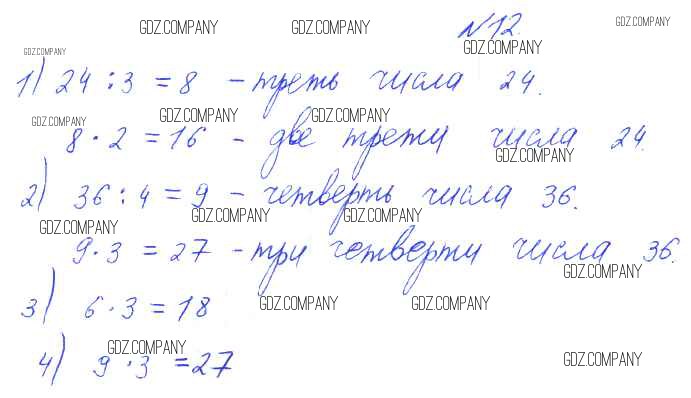 GDZ.COMPANY GDZ.COMPANY №12. GDZ.COMPANY
GDZ.COMPANY GDZ.COMPANY
1) 24 : 3 = 8 - треть числа 24.
GDZ.COMPANY GDZ.COMPANY GDZ.COMPANY
8 · 2 = 16 - две трети числа 24.
GDZ.COMPANY
2) 36 : 4 = 9 - четверть числа 36.
GDZ.COMPANY GDZ.COMPANY GDZ.COMPANY
9 · 3 = 27 - три четверти числа 36.
GDZ.COMPANY
3) 6 · 3 = 18 GDZ.COMPANY GDZ.COMPANY
GDZ.COMPANY
4) 9 · 3 = 27 GDZ.COMPANY